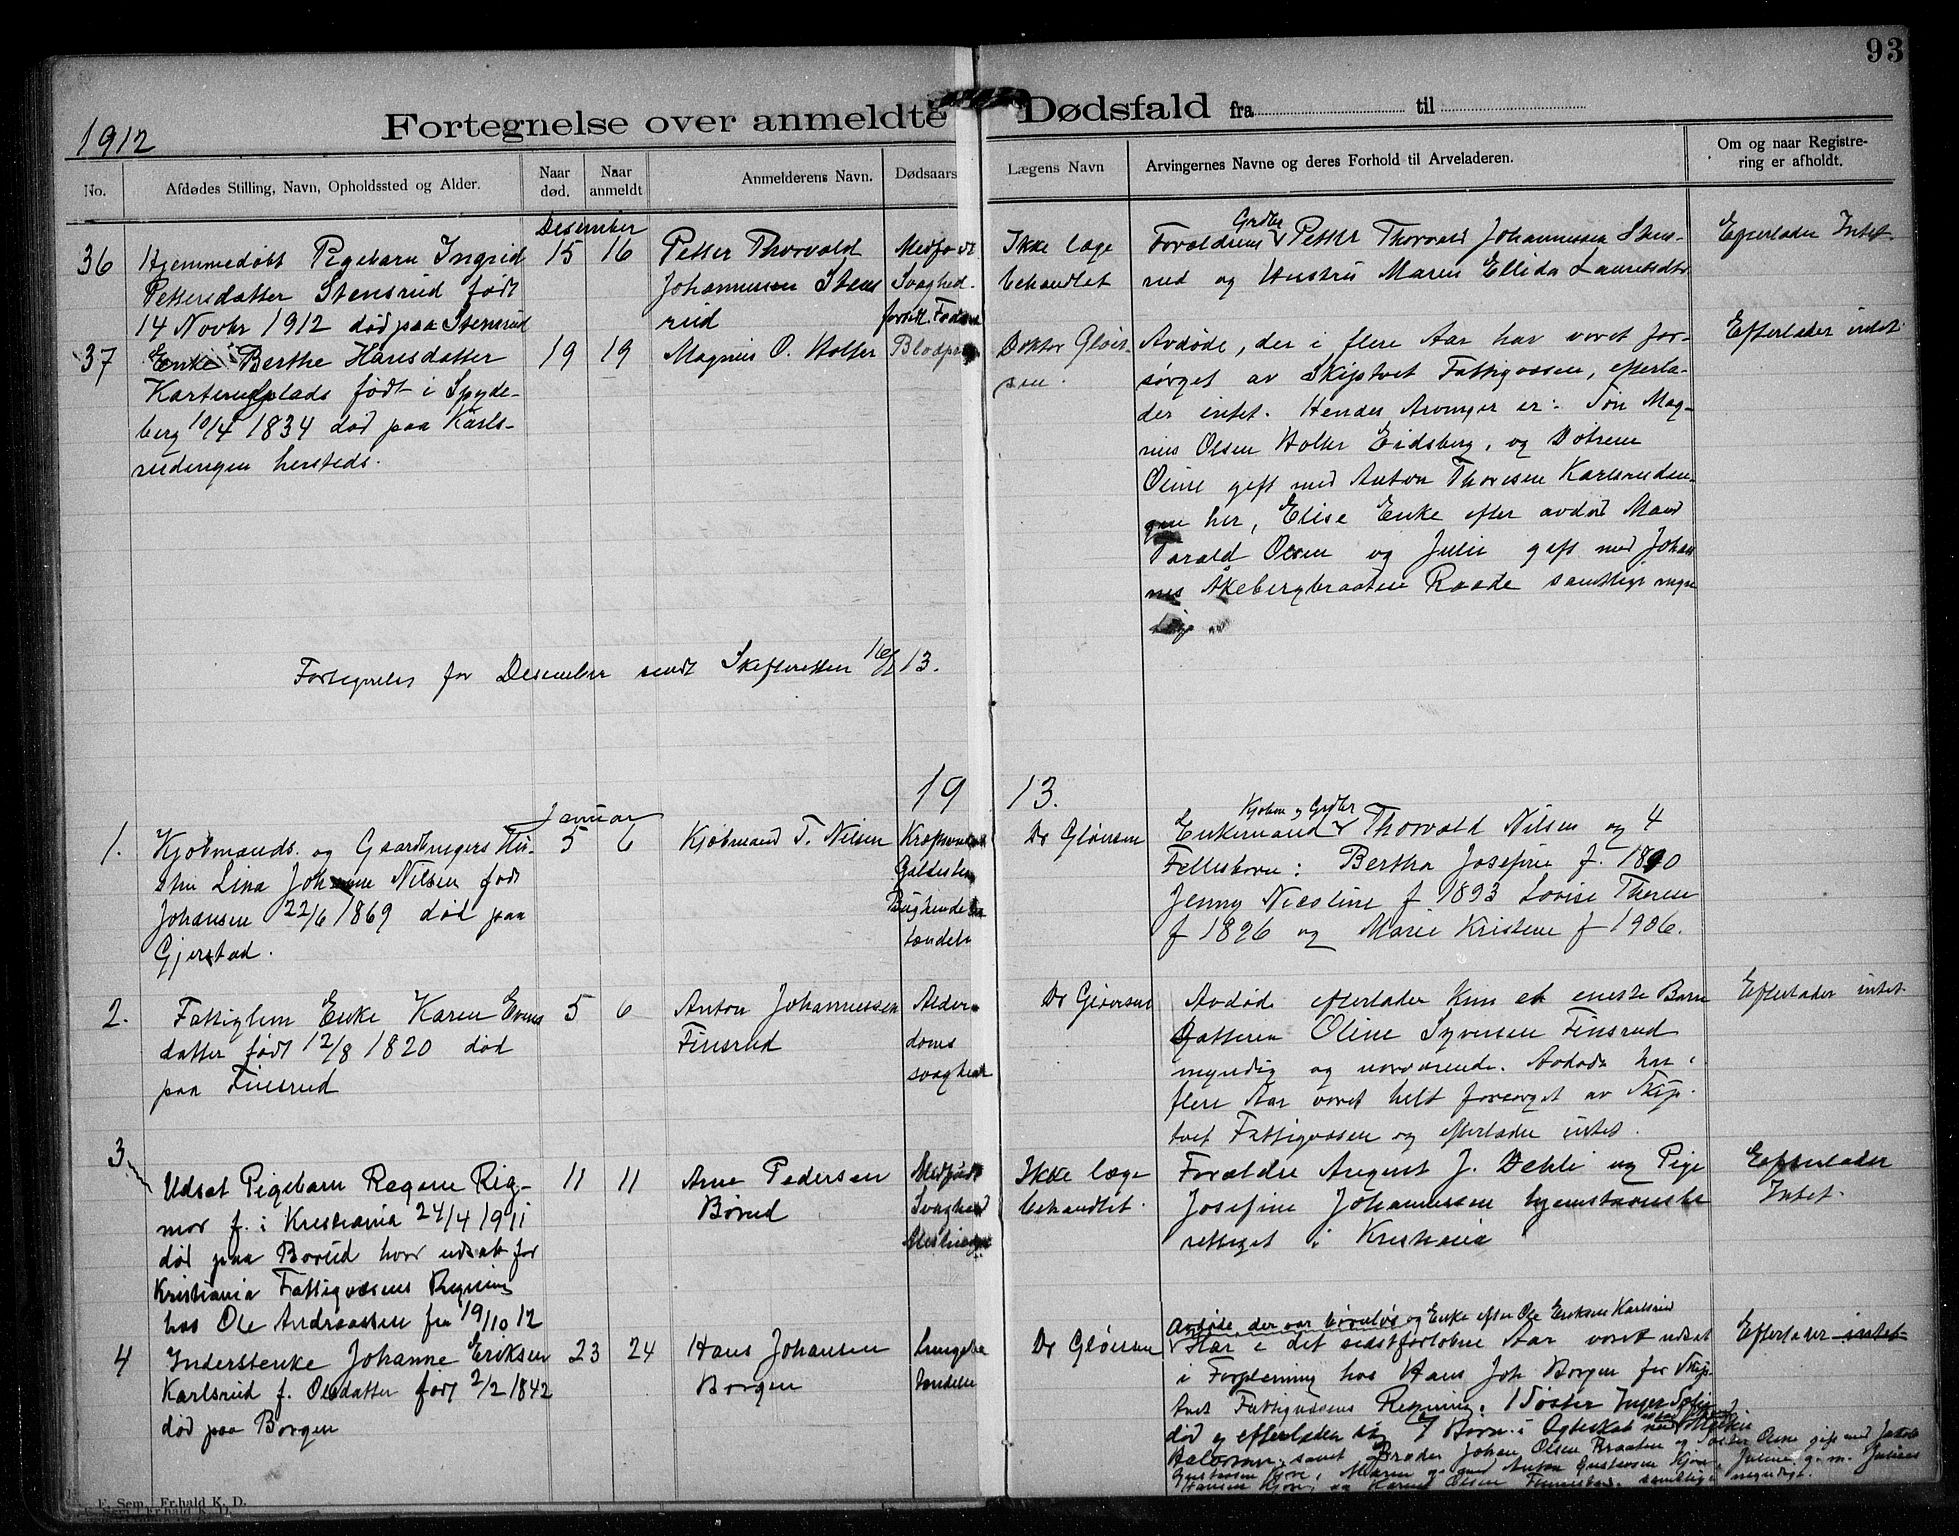 93
1912
Fortegnelse over anmeldte Dødsfald fra til
No.
Afdødes Stilling, Navn, Opholdssted og Alder.
Naar død.
Naar anmeldt
Anmelderens Navn.
Dødsaars
Lægens Navn
Arvingernes Navne og deres Forhold til Arveladeren.
Om og naar Registre-
ring er afholdt.
Desember
36
Hjemmedøbt Pigebarn Ingrid
Pettersdatter Stensrud født
14 Novbr 1912 død paa Stensrud
15
16
Petter Thorvald
Johannessen Stens
rud
Medfødt
Svaghed.
Ikke læge
behandlet
Grdbr
Forældrene Petter Thorvald Johannessen Stens-
rud og Hustru Maren Ellida Lauritsdtr
Efterlader Intet
37
Enke Berthe Hansdatter
Karterudplads født i Spyde-
berg 10/4 1834 død paa Karls-
rudengen hersteds.
19
19
Magnus O. Holter
Doktor Gløer-
sen.
Avdøde, der i flere Aar har været for-
sørget av Skiptvet Fattigvæsen, efterla-
der intet. Hendes Arvinger er: Søn Mag-
nus Olsen Holter Eidsberg, og Døtrene
Oline gift med Anton Thoresen Karlsruden-
gen her, Elise Enke efter avdød Mand
Torald Olsen og Julie gift med Johan
nes Åkebergbraaten Raade samtlige myn
dige
Efterlader intet
Fortegnelse for Desember sendt Skifteretten 13.
1913.
Januar
1.
Kjøbmands og Gaardbrugers Hu-
stru Lina Johanne Nilsen født
Johansen 22/6 1869 død paa
Gjerstad.
5
6
Kjøbmand T. Nilsen
Dr Gløersen
Kjøbm og Grdbr
Enkemand Thorvald Nilsen og 4
Fellesbørn: Bertha Josefine f. 1890
Jenny Nicoline f 1893 Lovise Therese
f 1896 og Marie Kristine f 1906.
2.
Fattiglem Enke Karen Evens
datter født 12/8 1820 død
paa Finsrud
5
6
Anton Johannessen
Finsrud
Alder
doms
svaghed
Dr Gløersen
Avdøde efterlader kun et eneste Barn
Datteren Oline Syversen Finsrud
myndig og nærværende. Avdøde har i
flere Aar været helt forsørget av Skip-
tvet Fattigvæsen og efterlader intet.
Efterlader intet
3
Udsat Pigebarn Ragna Rig-
mor f. i Kristiania 24/4 1911
død paa Borud hvor udsat for
Kristiania Fattigvæsens Regning
hos Ole Andreassen fra 19/10 12
11
11
Arne Pedersen
Børud
Medfødt
Svaghed
Ikke læge
behandlet.
Forældre August J. Dehli og Pige
Josefine Johannessen hjemstavnsbe
rettiget i Kristiania
Efterlader
Intet.
4
Inderstenke Johanne Eriksen
Karlsrud f. Olsdatter født 2/2 1842
død paa Borgen
23
24
Hans Johansen
Borgen
Lungebe
tændelse
Dr Gløersen
Avdøde, der var barnløs og Enke efter Ole Eriksen Karlsrud
Har i det sidstforløbne Aar været udsat
i Forpleining hos Hans Joh Borgen for Skip-
tvet Fattigvæsens Regning. 1 Søster Inger
død og efterlader sig 7 Børn i Ægteskab med
Halvorsen, samt Broder Johan Olsen Braaten og Søster Oline gift med Jakob
Gustavsen Kjøve, Maren g. med Anton Gustavsen Kjøve, Juline g. m. Julius
Hansen Kjøve, og Olsen samtlige myndige.
Efterlader intet
F. Sem, Fr.hald K. D.